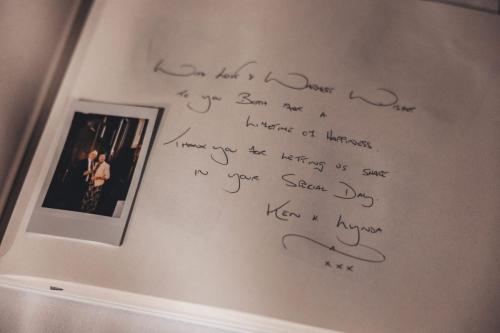 With Love & Warmest Wishes
to you Both for a
Lifetime of Happiness.
Thank you for letting us share
in your Special Day.
Ken x Lynda
x x x